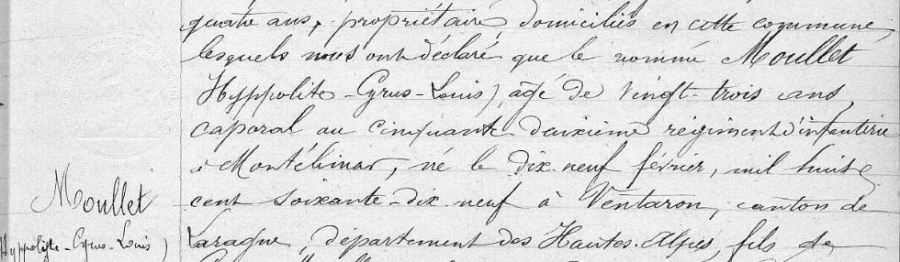 quatre ans, propriétaire, domiciliés en cette commune,
lesquels nous ont déclaré que le nommé Moullet
Hyppolite-Cyrus-Louis, agé de vingt-trois ans,
caporal au cinquante-deuxième régiment d'infanterie
à Montélimar, né le dix-neuf février, mil huit
cent soixante-dix-neuf à Ventaron, canton de
Laragne, département des Hautes-Alpes, fils de
Moullet
Hyppolyte-Cyrus-Louis)